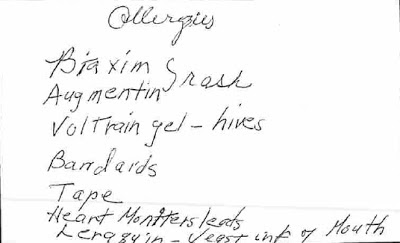 Allergies
Biaxim
Augmentin } rash
Voltrain gel - hives
Bandards
Tape
Heart Moniters leads
Leraquin - Yeast inf of Mouth